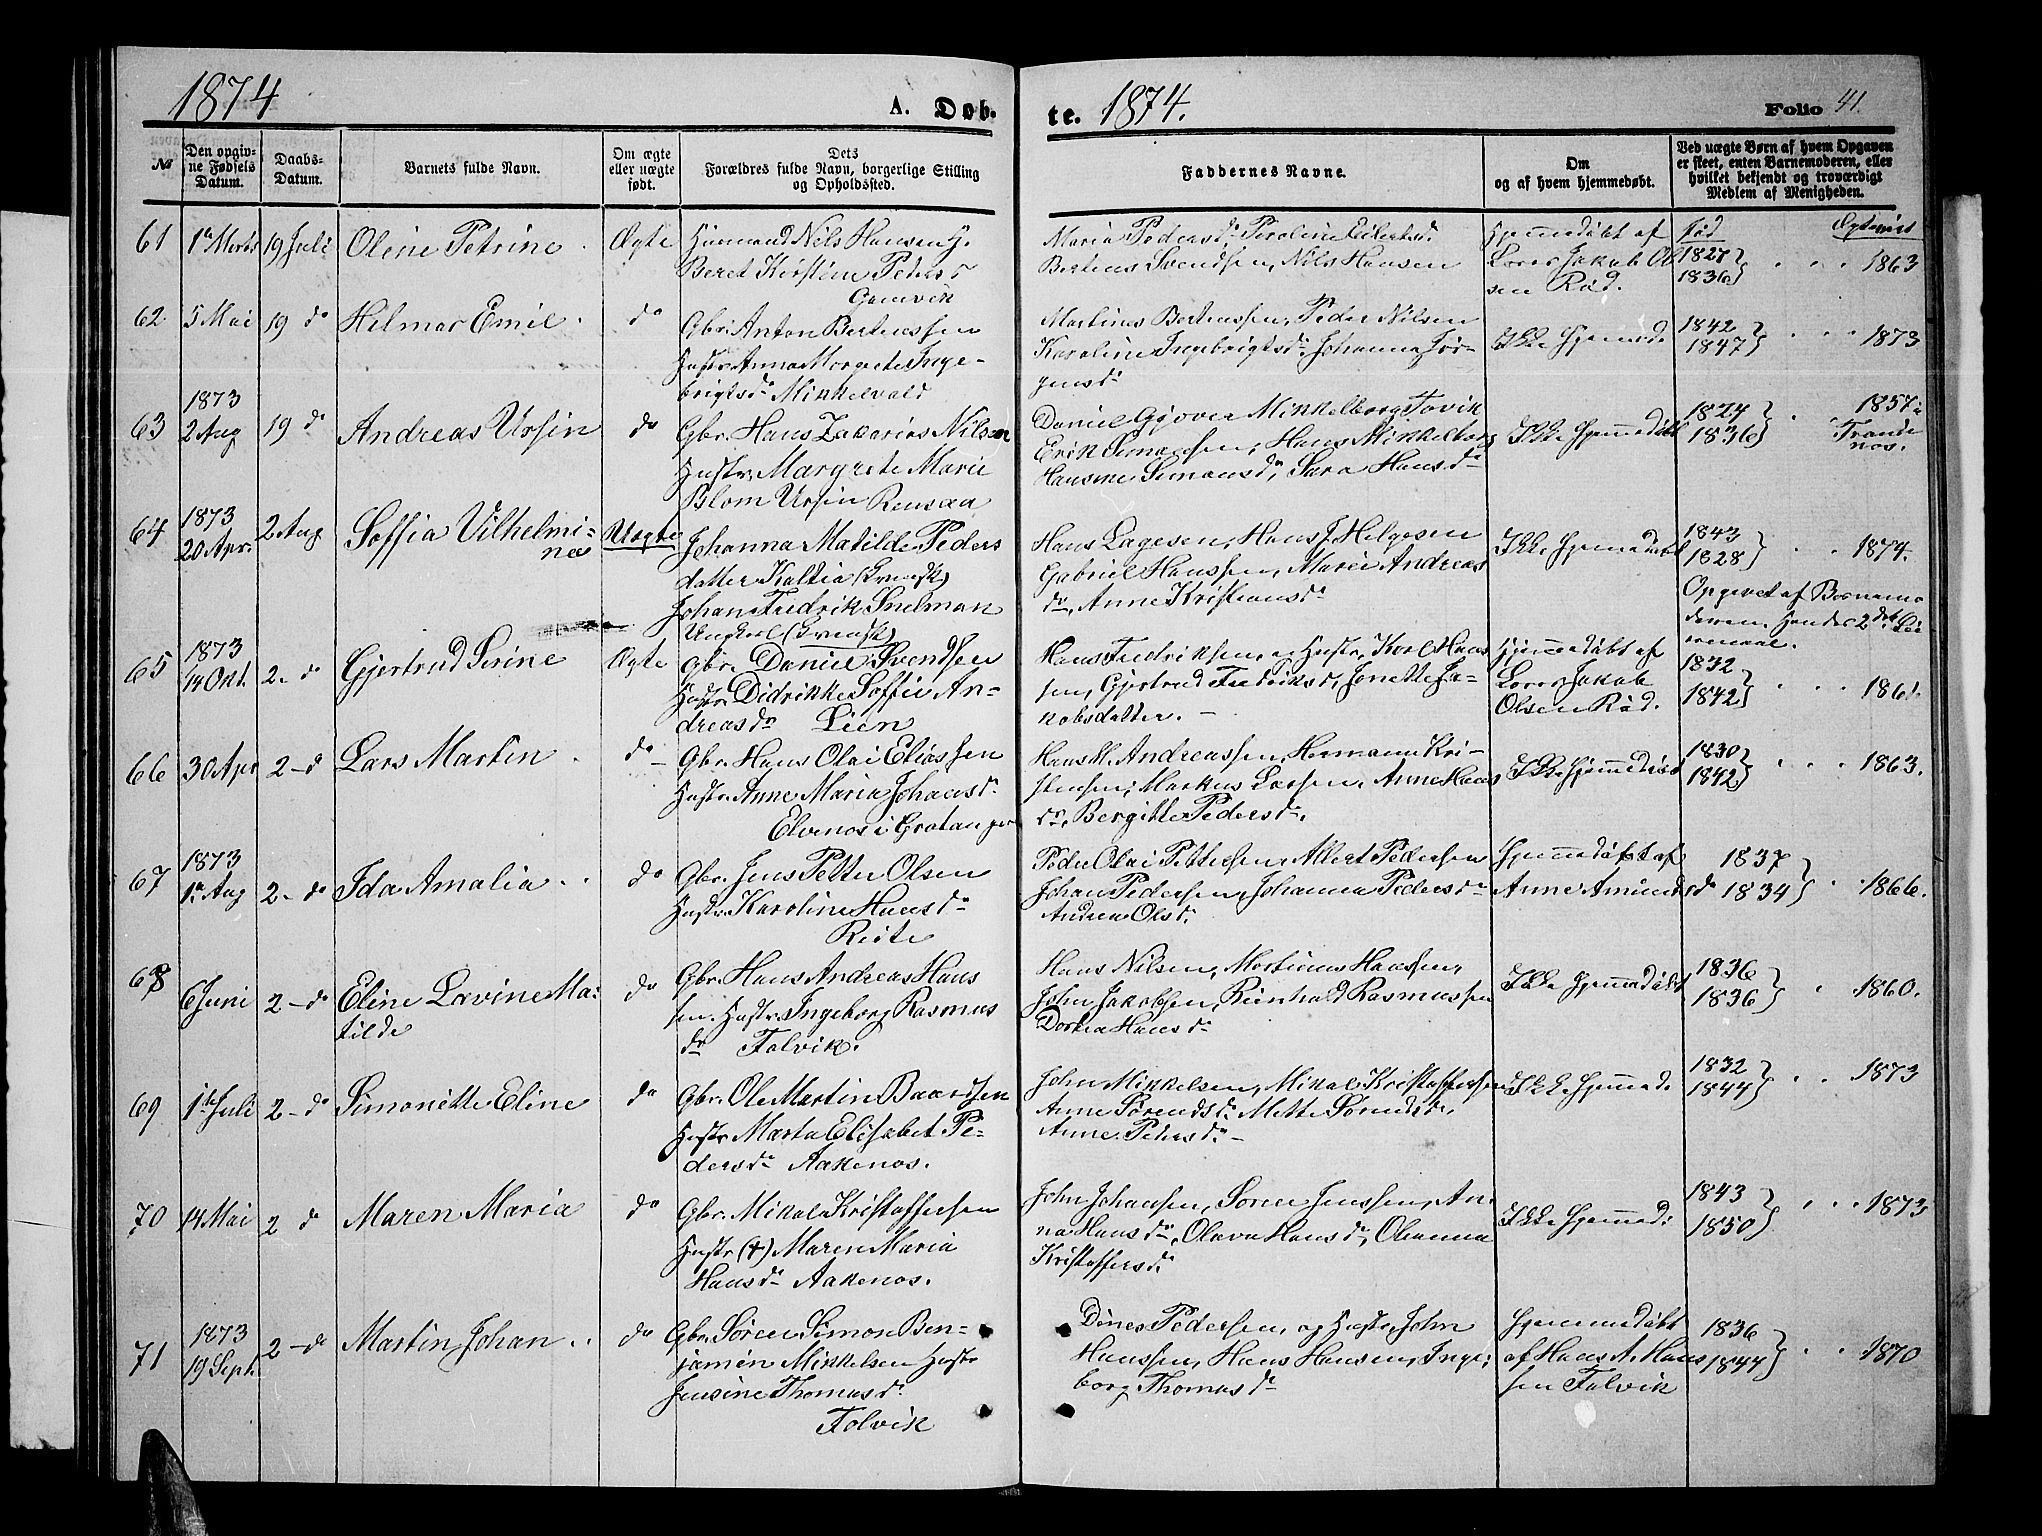 1874
A. Døb-
te. 1874.
Folio 41.
№
Den opgiv-
ne Fødsels
Datum.
Daabs-
Datum.
Barnets fulde Navn.
Om ægte
eller uægte
født.
Dets
Forældres fulde Navn, borgerlige Stilling
og Opholdssted.
Faddernes Navne.
Om
og af hvem hjemmedøbt.
Ved uægte Børn af hvem Opgaven
er skeet, enten Barnemoderen, eller
hvilket bekjendt og troværdigt
Medlem af Menigheden.
61 19 Juli Oline Petrine Ægte
Nils Hansen H.
Beret Kirstine Peders
Gamvik
Maria Pedersdr
Berteus Svendsen, Nils Hansen
Hjemmedøbt af
Jakob Ol
sen Rød.
Fød
1827
1836
1863
62 5 Mai 19 do Hilmar Emil do
Gbr. Anton Berteussen
Hustr. Anna Margrete Inge-
brigtsdr
Martines Berteussen, Peder Nilsen
Karoline Ingebrigtsdr Johanna Jør-
gensdr
Ikke Hjemmed.
1842
1847
1873
63 1873
2 Aug 19 do Andreas Ursin do
Gbr. Hans Zakarias Nilsen
Hustr. Margrete Marie
Blom Ursin Rensaa
Daniel Mikkelborg Tovik
Erik Simonsen, Hans Mikkelborg
Hansine Simonsdr, Sara Hansdr
Ikke Hjemmedøbt
1824
1836
1857 i
Trande
nos.
64 1873
20 Apr. 2 Aug Soffia Vilhelmi-
na Uægte
Johanna Matilde Peders
datter
Johan Fredrik Snelman
Ungkarl (Svensk)
Hans Lagesen, Hans J. Helgesen
Gabriel Hanssen, Marie Andreas
dr, Anne Kristiansdr
Ikke Hjemmedøbt
1843
1828
1874.
Opgivet af Barnemo
deren. Hendes 2det Lei
ermaal.
65 1873
14 Okt. 2- do Gjertrud Serine Ægte
Gbr. Daniel Svendsen
Hustr. Didrikke Soffie An-
dreasdr Lien
Hans Fredriksen, Hustr, Karl Hans
sen, Gjertrud Fredriksdr, Jonette Ja-
kobsdatter. -
Hjemmedøbt af
Jakob
Olsen Rød.
1832
1842
186
66 30 Apr 2- d Lars Martin do
Gbr. Hans Olai Eliassen
Hustr. Anne Maria Johansdr
Elvenes i Gratangen
Hans H. Andreassen, Hermann Kri-
stensen, Markus Larsen, Anne Hans
dr, Bergitte Pedersdr.
Ikke Hjemmedøbt
1830
1842
1863.
67 1873
1ste Aug 2- do Ida Amalia do
Gbr. Jens Petter Olsen
Hustr. Karoline Hansdr
Peder Olai Pettersen, Albert Pedersen
Johan Pedersen, Johanna Pedersdr
Andrea Olsdr.
Hjemmedøbt af
Anne Amundsdr
1837
1834
1866.
68 6 Juni 2- do Eline Lovine Ma-
tilde do
Gbr. Hans Andreas Hans
sen. Hustr. Ingeborg Rasmus
dr Folvik.
Hans Nilsen, Martinus Hanssen,
John Jakobsen, Reinhold Rasmussen
Dortea Hansdr
Ikke Hjemmedøbt
1836
1836
1860.
69 1ste Juli 2- do Simonette Eline do
Gbr. Ole Martin Baardsen
Hustr. Marta Elisabet Pe-
dersdr Aakenes.
John Mikkelsen, Mikal Kristoffersen
Anne Sørensdr. Mette Sørensdr.
Anne Pedersdr -
Ikke Hjemmed.
1832
1844
1873
70 14 Mai 2 d Maren Maria do
Gbr. Mikal Kristoffersen
Hustr. (†) Maren Maria
Hansdr Aakenes.
John Johansen, Søren Jenssen, An-
na Hansdr, Olava Hansdr, Oleanna
Kristoffersdr.
Ikke Hjemmed.
1843
1850
1873
71 1873
19 Sept. 2- do Martin Johan do
Gbr. Søren Simon Ben-
jamin Mikkelsen Hustr
Jensine Thomasdr.
Folvik
Dines Pedersen, og Hustr, John
Hanssen, Hans Hansen, Inge-
borg Thomasdr
Hjemmedøbt
af Hans A. Hans
sen Folvik
1836
1844
1870